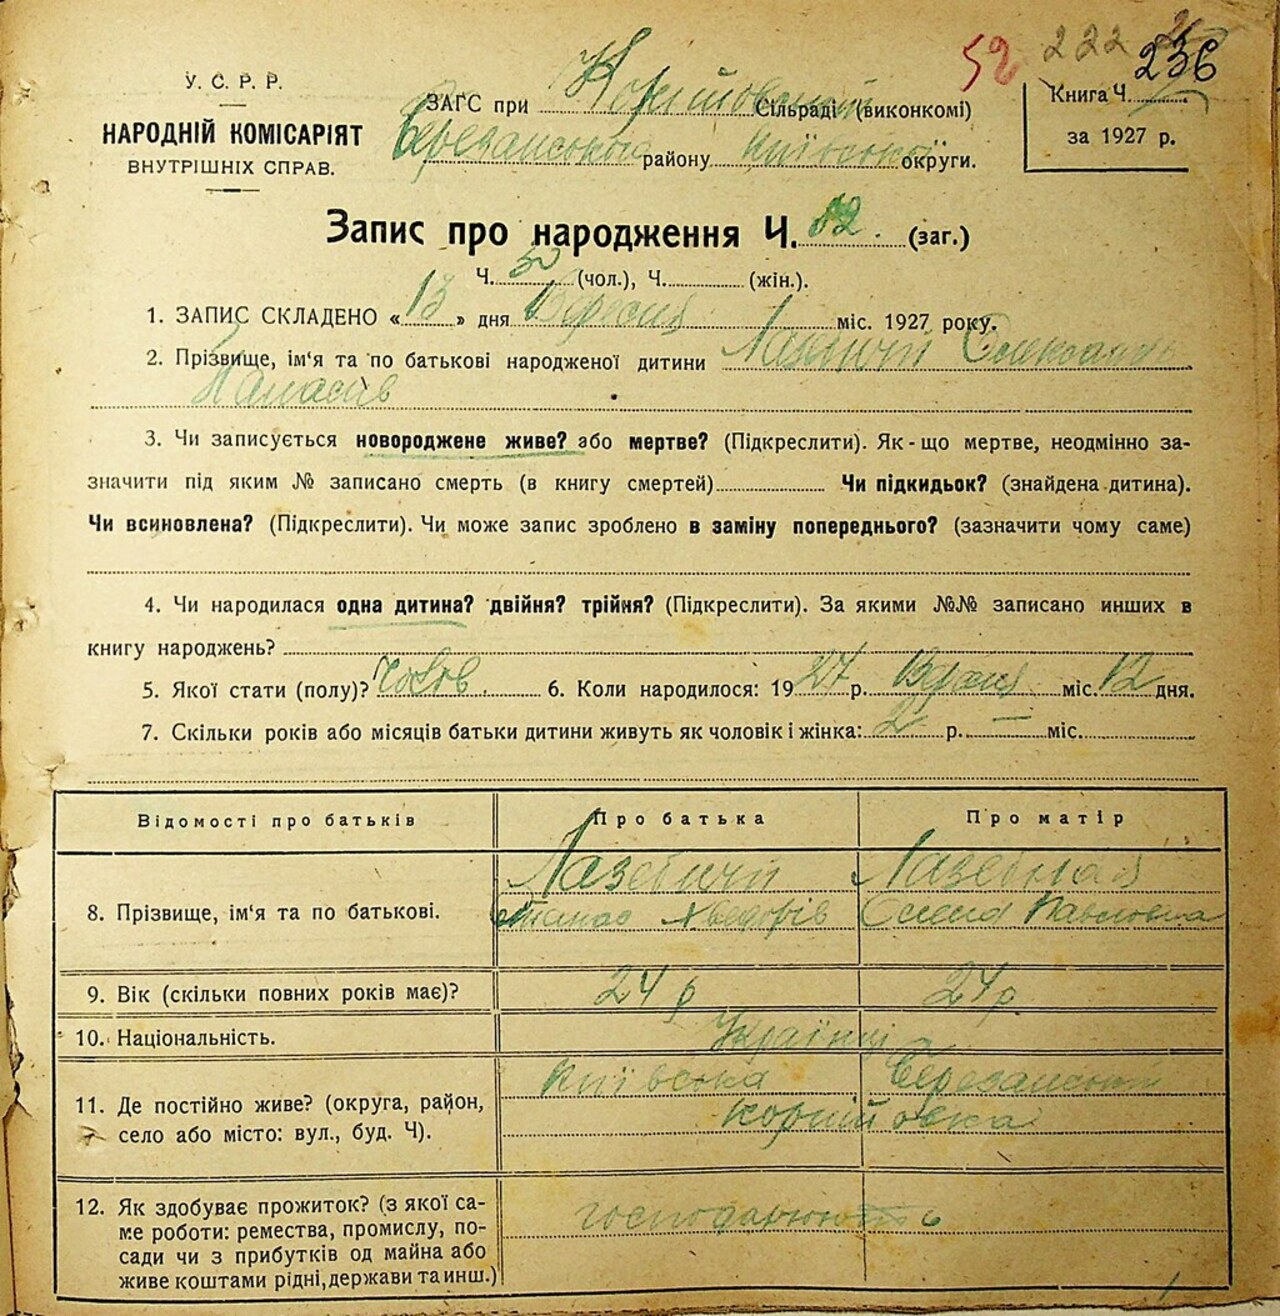 52 222 236
У. С. Р. Р.
НАРОДНІЙ КОМІСАРІЯТ
ВНУТРІШНІХ СПРАВ.
ЗАГС при Корнійовській Сільраді (виконкомі)
Березанського району Київської округи.
Книга Ч.
за 1927 р.
Запис про народження Ч. 82. (заг.)
Ч. 50 (чол.), Ч. (жін.).
1. ЗАПИС СКЛАДЕНО « 13 » дня Вересня міс. 1927 року.
2. Прізвище, ім'я та по батькові народженої дитини Лазебний Олександр
Панасів
3. Чи записується новороджене живе? або мертве? (Підкреслити). Як-що мертве, неодмінно за-
значити під яким № записано смерть (в книгу смертей) Чи підкидьок? (знайдена дитина).
Чи всиновлена? (Підкреслити). Чи може запис зроблено в заміну попереднього? (зазначити чому саме)
4. Чи народилася одна дитина? двійня? трійня? (Підкреслити). За якими №№ записано инших в
книгу народжень?
5. Якої стати (полу)? Чолов. 6. Коли народилося: 1927 р. Вересня міс. 12 дня.
7. Скільки років або місяців батьки дитини живуть як чоловік і жінка: 2 р. — міс.
Відомості про батьків Про батька Про матір
8. Прізвище, ім'я та по батькові. Лазебний Лазебная
Панас Хведорів Олена Павловна
9. Вік (скільки повних років має)? 24 р 24 р
10. Національність. Українці
11. Де постійно живе? (округа, район, село або місто: вул., буд. Ч). Київська Березанський
Корнійовка
12. Як здобуває прожиток? (з якої са-
ме роботи: ремества, промислу, по-
сади чи з прибутків од майна або
живе коштами рідні, держави та инш.) господарюють